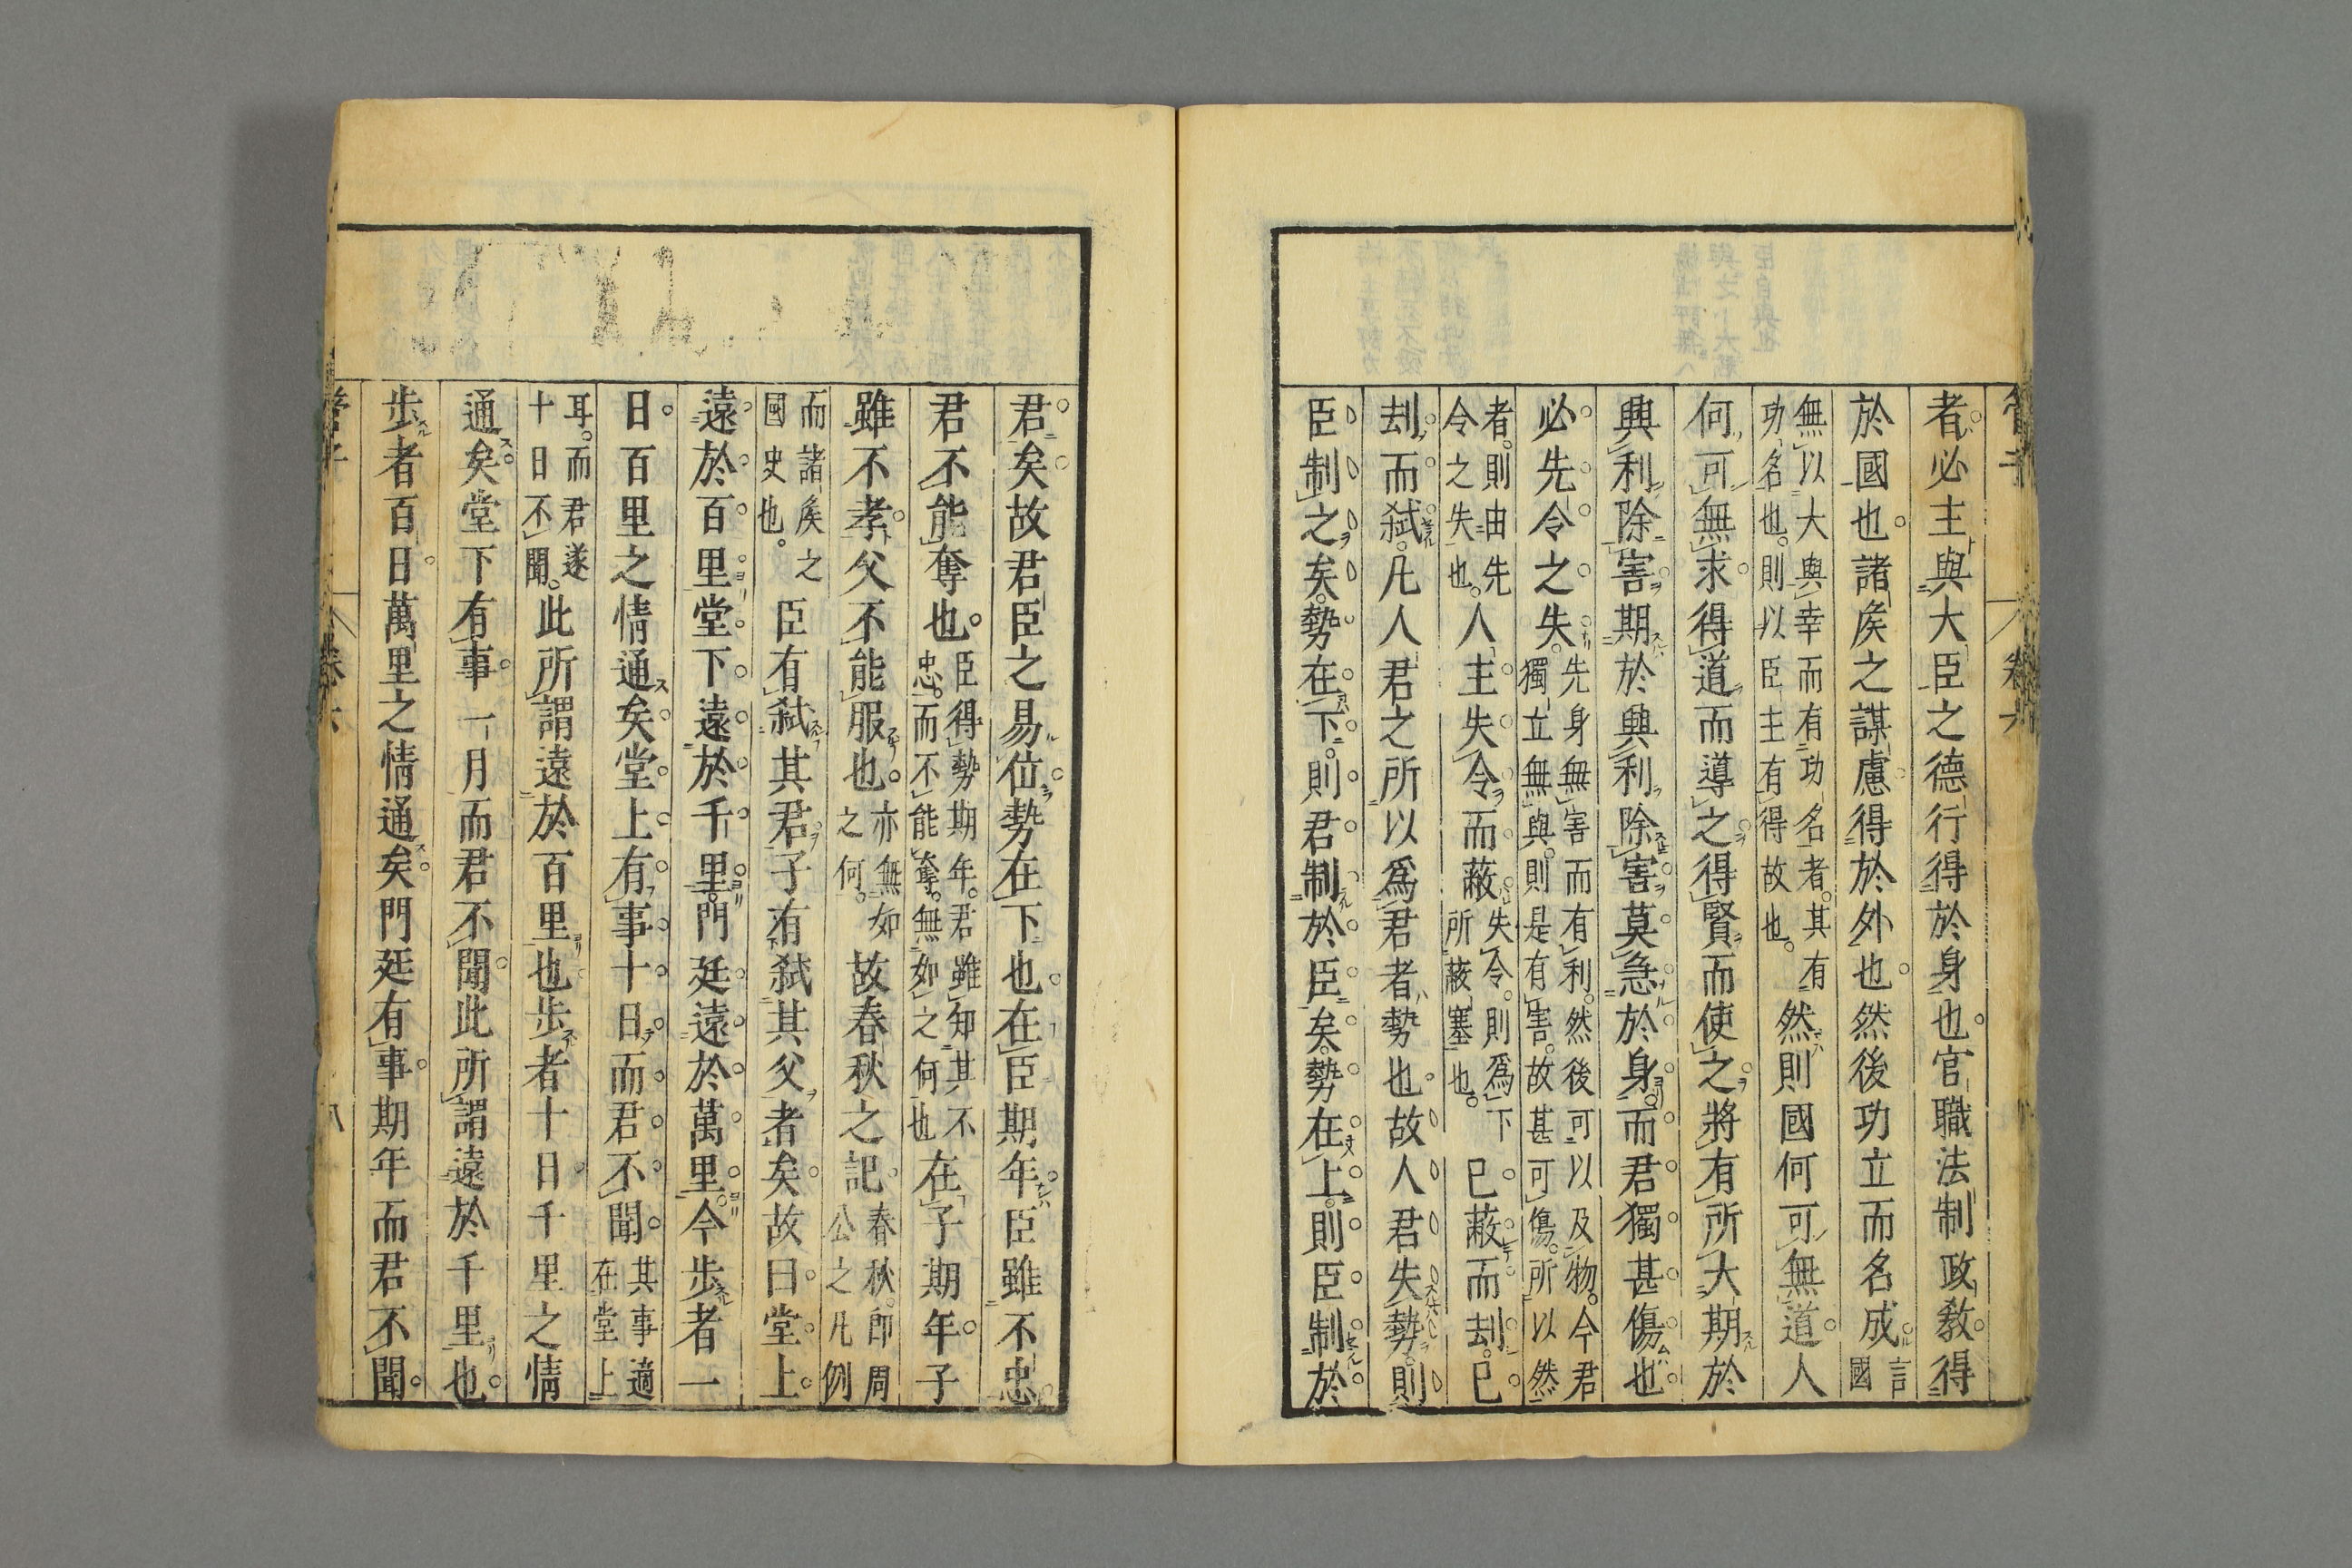 管子
卷六
者必主與大臣之德行得於身也官職法制政教得
於國也諸矦之謀慮得於外也然後功立而名成言國
無以大與幸而有功名者其有功名也則以臣主有得故也然則國何可無道人
何可無求得道而導之得賢而使之將有所大期於
興利除害期於興利除害莫急於身而君獨甚傷也
必先令之失先身無害而有利然後可以及物今君獨立無與則是有害故甚可傷所以然
者則由先令之失也人主失令而蔽失令則爲下所蔽塞也已蔽而刦已
刦而弑凡人君之所以爲君者勢也故人君失勢則
臣制之矣勢在下則君制於臣矣勢在上則臣制於
君矣故君臣之易位勢在下也在臣期年臣雖不忠
君不能奪也臣得勢期年君雖知其不忠而不能奪無如之何也在子期年子
雖不孝父不能服也亦無如之何故春秋之記春秋即周公之凡例
而諸矦之國史也臣有弑其君子有弑其父者矣故曰堂上
遠於百里堂下遠於千里門廷遠於萬里今步者一
日百里之情通矣堂上有事十日而君不聞其事適在堂上
耳而君遂十日不聞此所謂遠於百里也步者十日千里之情
通矣堂下有事一月而君不聞此所謂遠於千里也
步者百日萬里之情通矣門廷有事期年而君不聞
管子
卷六
八